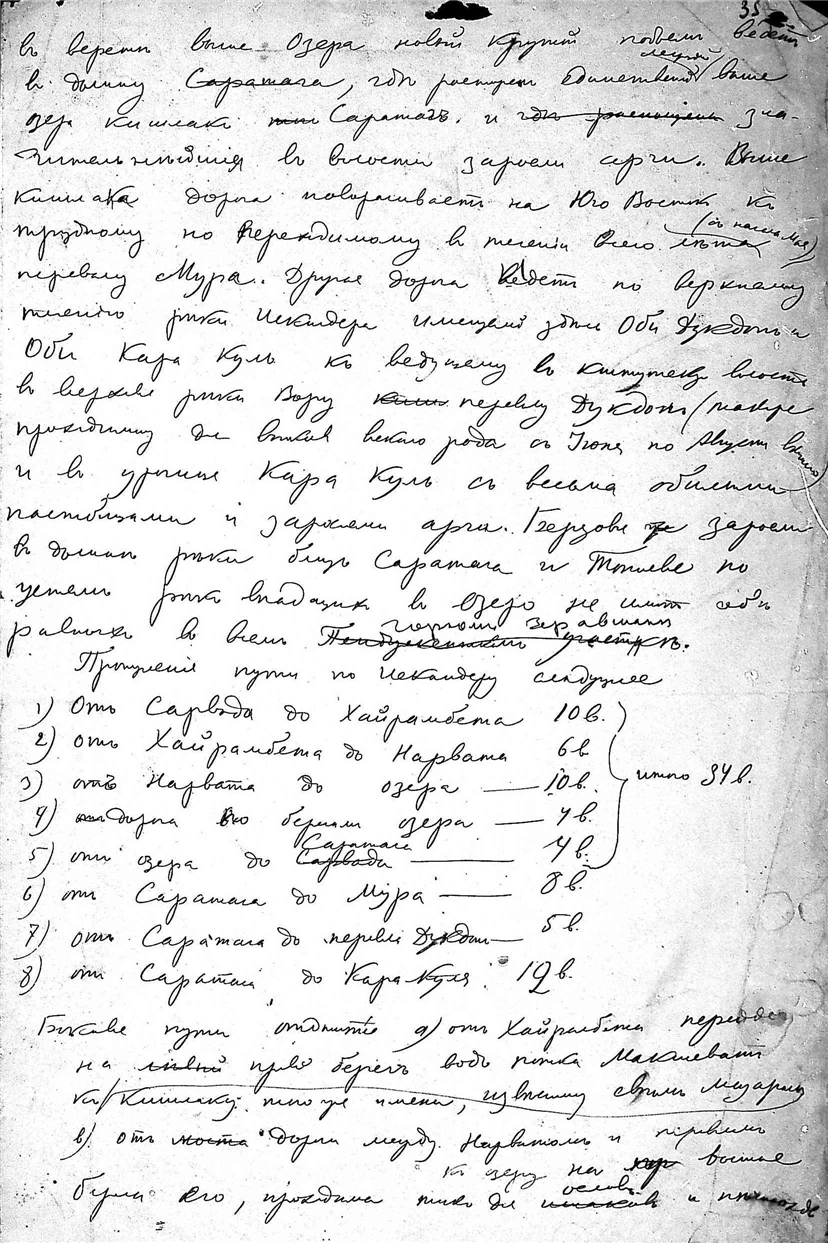 35
въ верстѣ выше Озера новый крутой подъемъ ведетъ
въ долину Саратага, гдѣ единственный лежай выше
озера кишлакъ Саратагъ. и гдѣ расположены зна-
чительнѣйшія въ волости заросли арчи. Выше
кишлака дорога поворачиваетъ на Юго Востокъ къ
трудному но переходимому въ теченіи всего лѣта (съ начала Мая)
перевалу Мура. Другая дорога ведетъ по верхнему
теченію рѣки Искандера имѣщей здѣсь Оби Дукдонъ и
Оби Кара Куль къ ведущему въ волость
въ верховье рѣки Вору перевалу Дукдонъ (также
проходимому для всякаго рода съ Іюня по Августъ
и въ урочище Кара Куль съ весьма обильными
пастбищами и зарослями арчи. Березовые же заросли
въ долинѣ рѣки близъ Саратага и Тополевые по
устьямъ рѣкъ впадающихъ въ Озеро не имѣютъ себѣ
равныхъ во всемъ горномъ Зеравшанѣ
Пендженкентскомъ участкѣ.
Протяженіе пути по Искандеру слѣдующее
1) Отъ Сарвада до Хайрамбета 10 в.
2) отъ Хайрамбета до Нарвата 6 в
3) отъ Нарвата до озера — 10 в.
4) дорога по берегамъ озера — 4 в. итого 34 в.
5) отъ озера до Сарвада Саратага — 4 в.
6) отъ Саратага до Мура — 8 в.
7) отъ Саратага до перевала Дукдон — 5 в.
8) отъ Саратага до Кара Куля. 12 в.
Боковые пути а) отъ Хайрамбета переходъ
на лѣвый правый берегъ вдоль потока Макшеватъ
къ кишлаку того же имени, извѣстному своимъ Мазаромъ
в) отъ моста дороги между Нарватомъ и переваломъ
къ озеру на восточн
берегъ его, проходима только для ословъ и